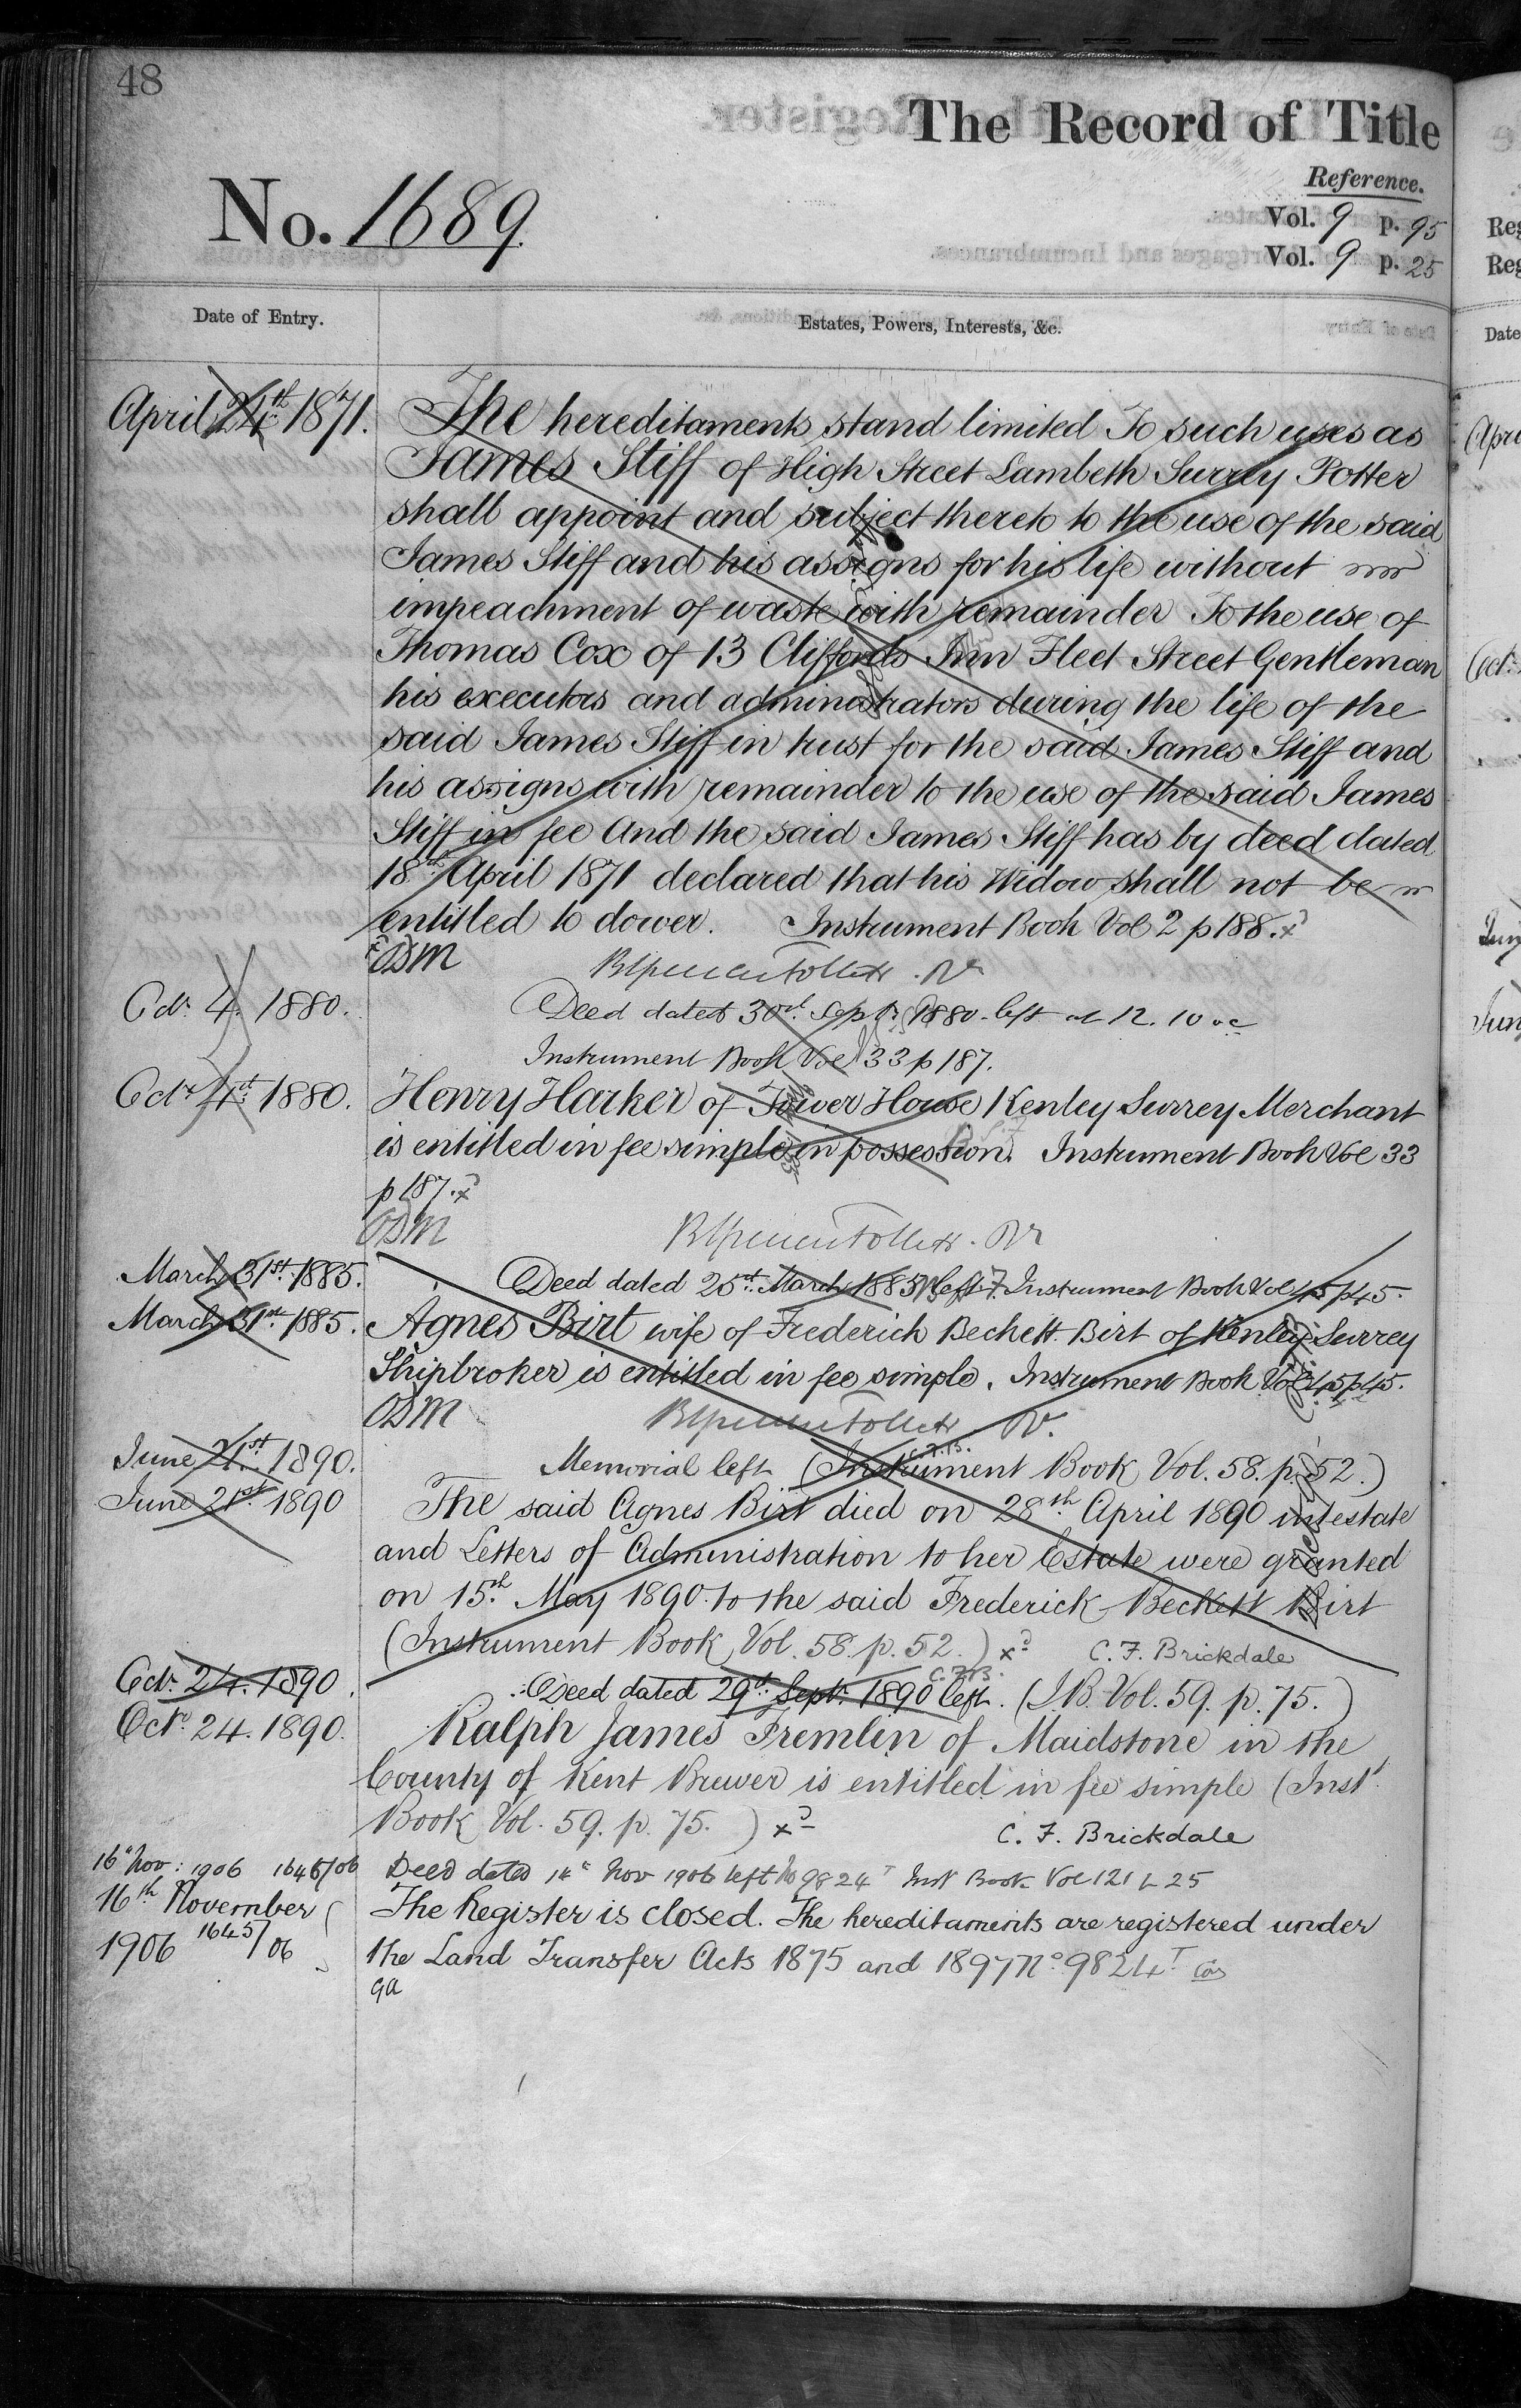 48
The Record of Title
Reference.
No. 1689.
Vol. 9 p. 95
Vol. 9 p. 25
Date of Entry.
Estates, Powers, Interests, &c.
April 24th 1871. The hereditaments stand limited To such uses as
James Stiff of High Street Lambeth Surrey Potter
shall appoint and subject thereto to the use of the said
James Stiff and his assigns for his life without
impeachment of waste with remainder To the use of
Thomas Cox of 13 Cliffords Inn Fleet Street Gentleman
his executors and administrators during the life of the
said James Stiff in trust for the said James Stiff and
his assigns with remainder to the use of the said James
Stiff in fee And the said James Stiff has by deed dated
18th April 1871 declared that his Widow shall not be
entitled to dower. Instrument Book Vol 2 p 188.
Octr 4. 1880. Deed dated 30th Septr 1880 left at 12.10
Instrument Book Vol 33 p 187.
Octr 4th 1880. Henry Harker of Tower House Kenley Surrey Merchant
is entitled in fee simple in possession. Instrument Book Vol 33
p 187.
March 31st 1885. Deed dated 25th March 1885 left. Instrument Book Vol 45 p 45.
March 31st 1885. Agnes Birt wife of Frederick Beckett Birt of Kenley Surrey
Shipbroker is entitled in fee simple. Instrument Book Vol 45 p 45.
June 21st 1890. Memorial left (Instrument Book Vol. 58. p. 52.)
June 21st 1890 The said Agnes Birt died on 28th April 1890 intestate
and Letters of Administration to her Estate were granted
on 15th May 1890 to the said Frederick Beckett Birt
(Instrument Book Vol. 58. p. 52.) C. F. Brickdale
Octr 24. 1890. C.F.B.
Deed dated 29th Septr 1890 left. (I.B. Vol. 59. p. 75.)
Octr 24. 1890. Ralph James Fremlin of Maidstone in the
County of Kent Brewer is entitled in fee simple (Instt
Book Vol. 59. p. 75.) C. F. Brickdale
16th Nov: 1906 1646/06 Deed dated 14th Nov 1906 left No 9824T Inst Book Vol 121 p 25
16th November The Register is closed. The hereditaments are registered under
1906 1645/06 the Land Transfer Acts 1875 and 1897 No 9824T